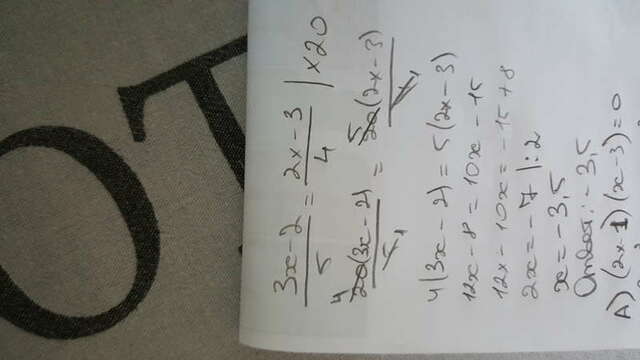 OT
(3x-2)/5 = (2x-3)/4 | ×20
4 20(3x-2)/5 1 = 5 20(2x-3)/4 1
4(3x-2) = 5(2x-3)
12x-8 = 10x-15
12x-10x = -15+8
2x = -7 |:2
x = -3,5
Ответ: -3,5
А) (2x-1)(x-3)=0